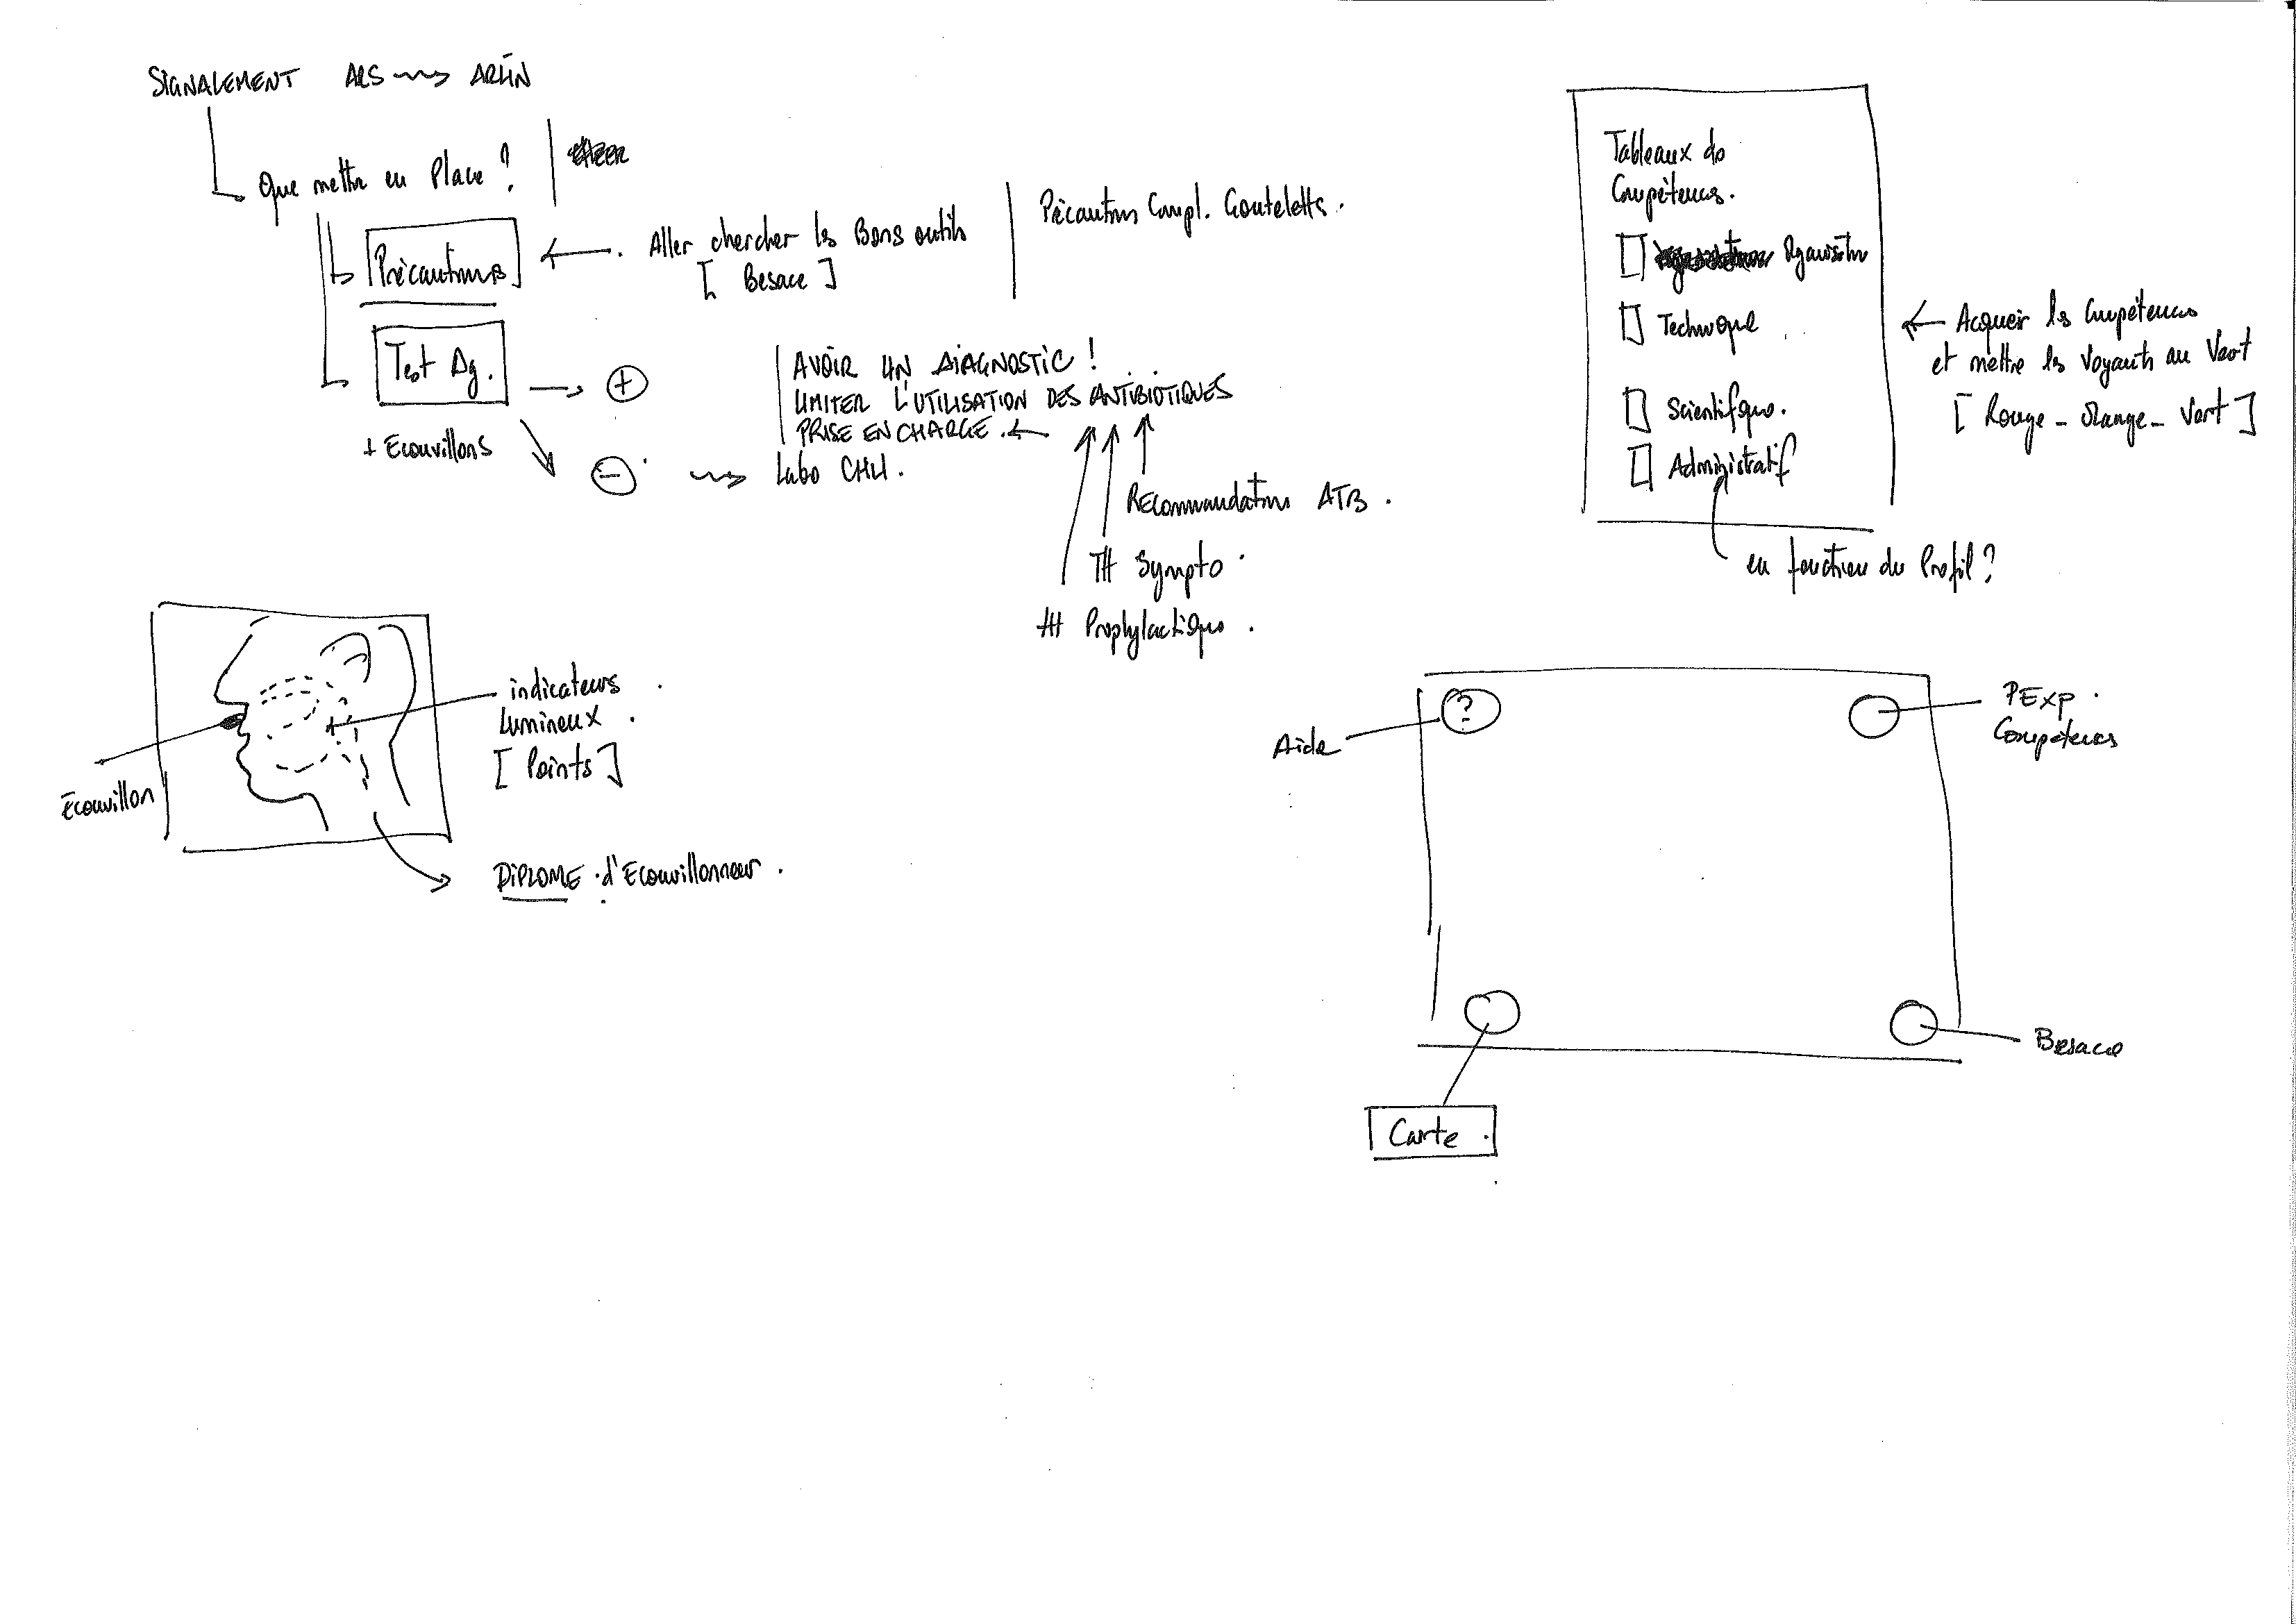 SIGNALEMENT ARS ARLIN
Que mettre en Place ?
Précautions
Aller chercher les Bons outils
[ Besace ]
Précautions Compl. Gouttelettes.
Test Ag.
+
+ Ecouvillons
-
AVOIR UN DIAGNOSTIC !
LIMITER L'UTILISATION DES ANTIBIOTIQUES
PRISE EN CHARGE.
Labo CHU.
Recommandations ATB.
TH Sympto.
TH Prophylactique.
Tableaux de
Compétences.
Organisation
Technique
Scientifique.
Administratif
en fonction du Profil ?
Acquérir les Compétences
et mettre les Voyants au Vert
[ Rouge - Orange - Vert ]
Ecouvillon
indicateurs
Lumineux.
[ Points ]
DIPLOME d'Ecouvillonneur.
Aide
?
PExp.
Compétences
Carte.
Besace